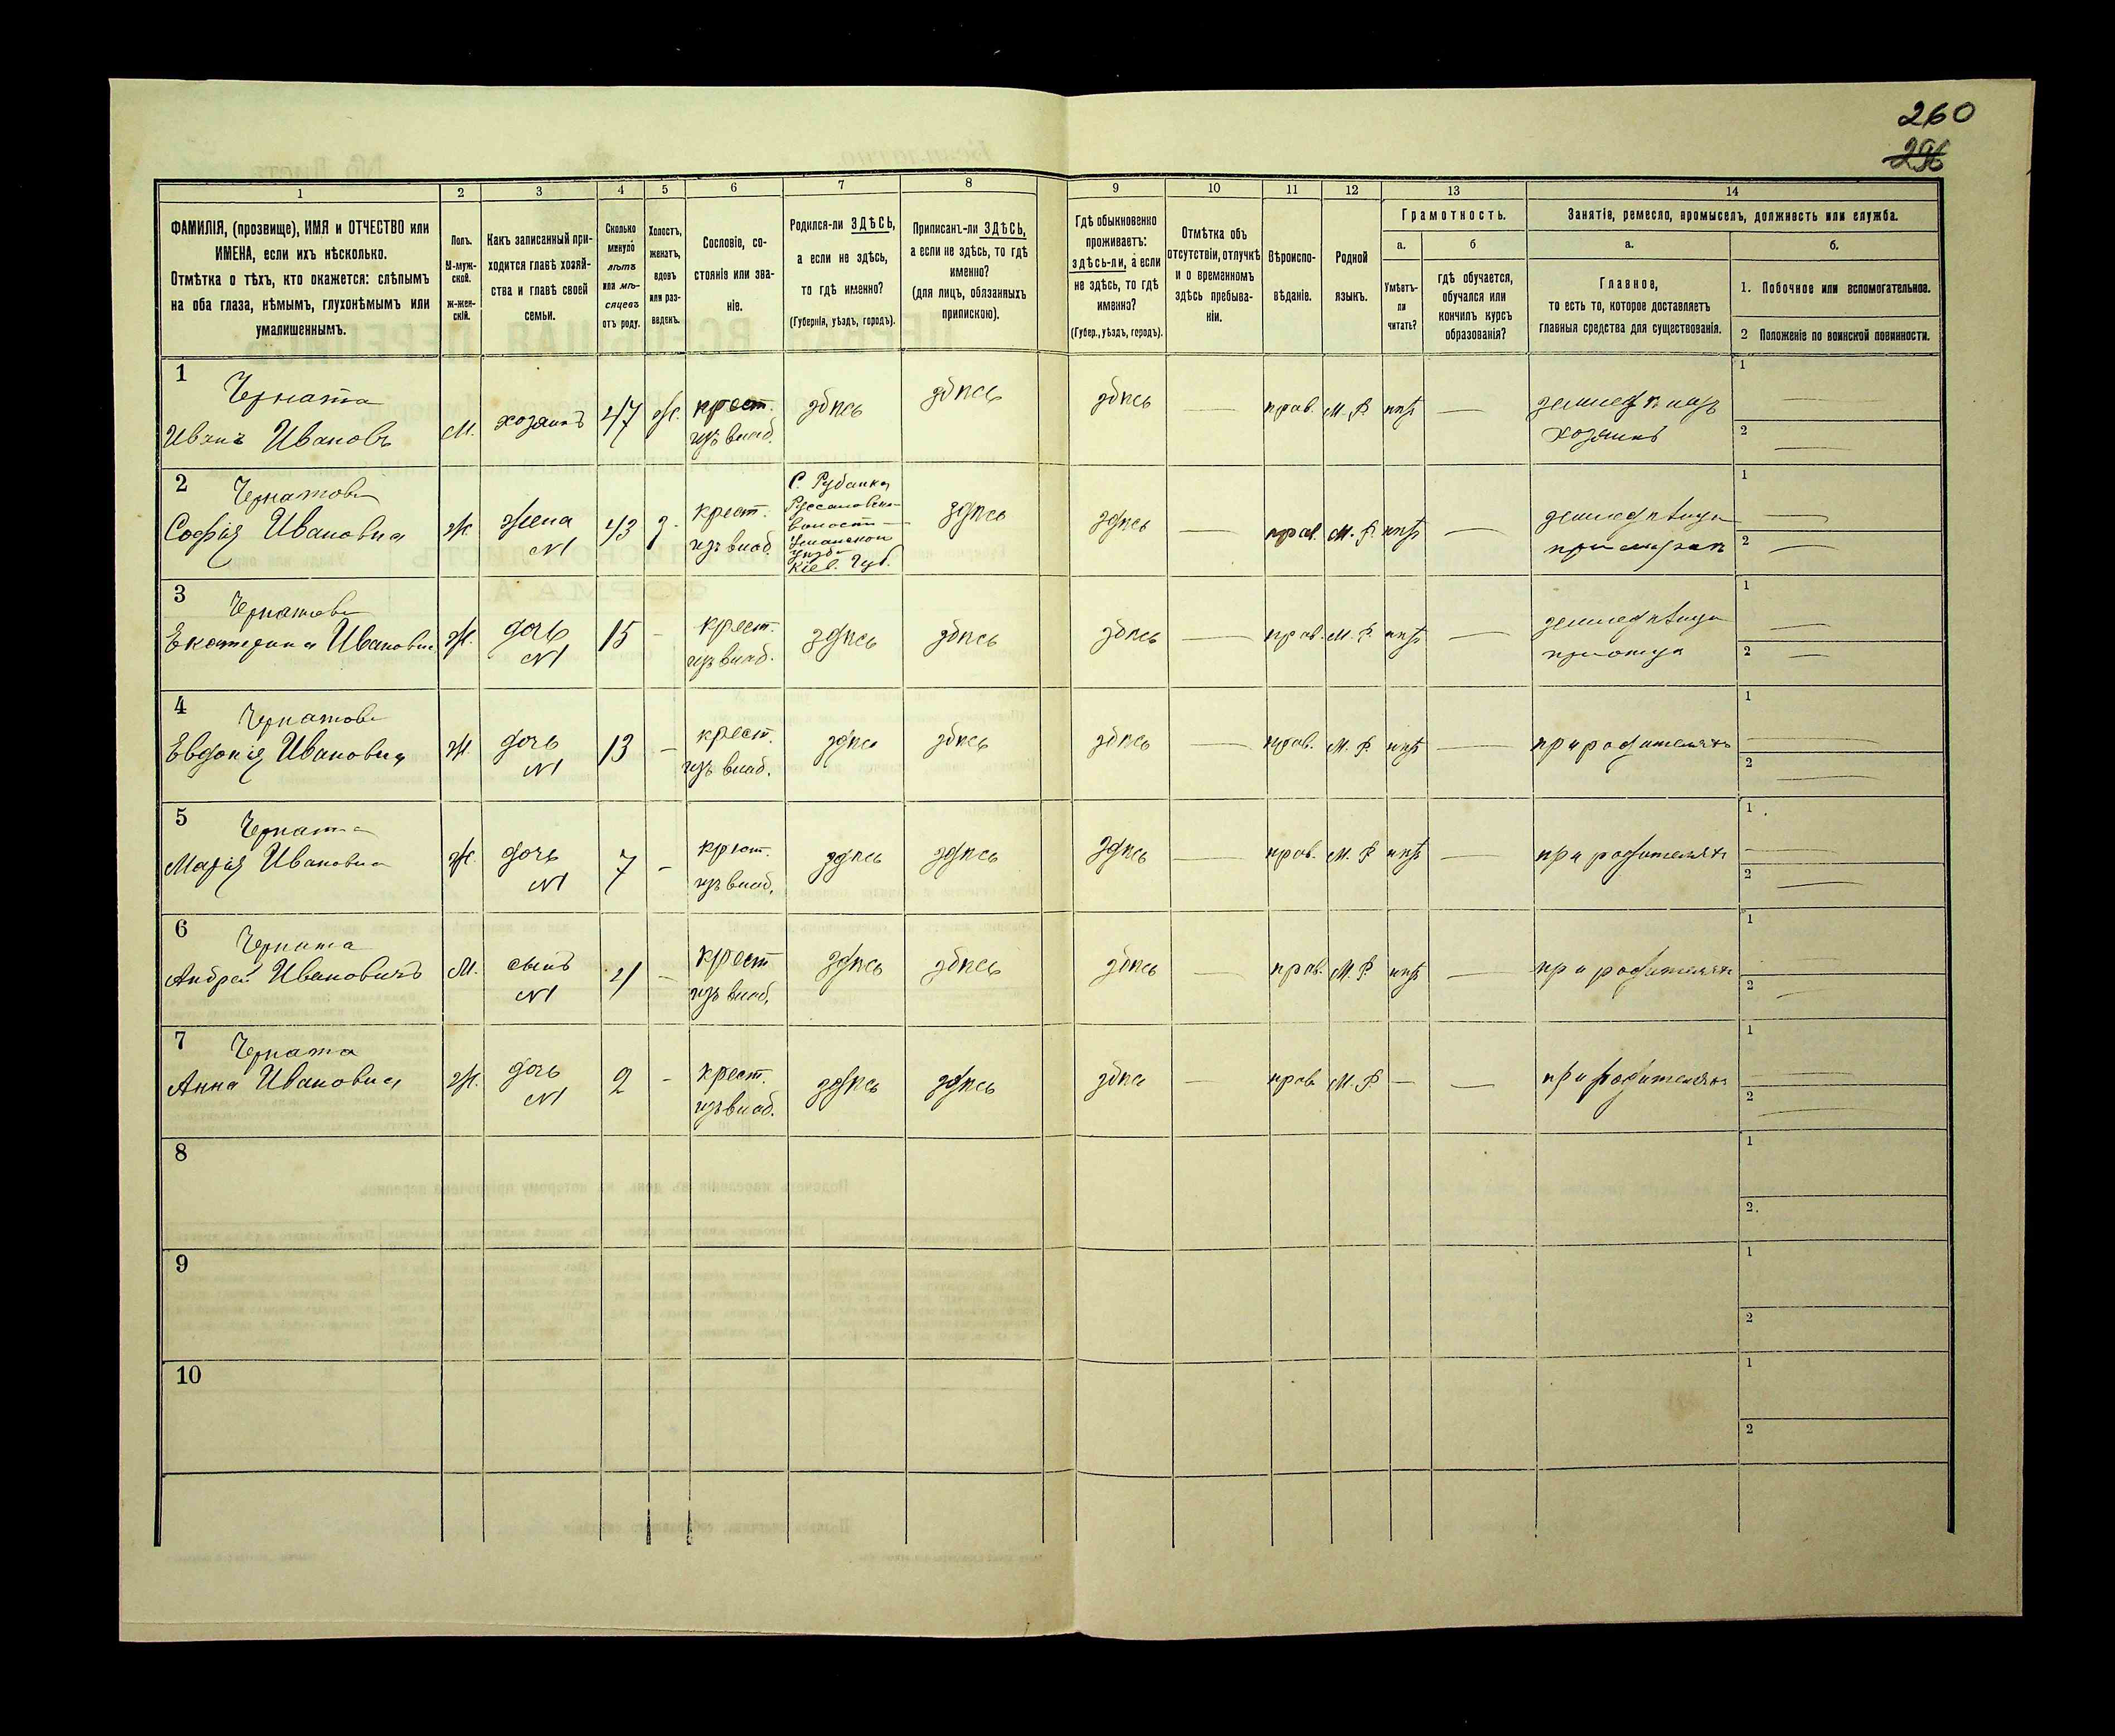 260
296
1 2 3 4 5 6 7 8 9 10 11 12 13 14
ФАМИЛІЯ, (прозвище), ИМЯ и ОТЧЕСТВО или
ИМЕНА, если ихъ нѣсколько.
Отмѣтка о тѣхъ, кто окажется: слѣпымъ
на оба глаза, нѣмымъ, глухонѣмымъ или
умалишеннымъ.
Полъ.
М-муж-
ской.
ж-жен-
скій.
Какъ записанный при-
ходится главѣ хозяй-
ства и главѣ своей
семьи.
Сколько
минуло
лѣтъ
или мѣ-
сяцевъ
отъ роду.
Холостъ,
женатъ,
вдовъ
или раз-
веденъ.
Сословіе, со-
стояніе или зва-
ніе.
Родился-ли ЗДѢСЬ,
а если не здѣсь,
то гдѣ именно?
(Губернія, уѣздъ, городъ).
Приписанъ-ли ЗДѢСЬ,
а если не здѣсь, то гдѣ
именно?
(для лицъ, обязанныхъ
припискою).
Гдѣ обыкновенно
проживаетъ:
здѣсь-ли, а если
не здѣсь, то гдѣ
именно?
(Губер., уѣздъ, городъ).
Отмѣтка объ
отсутствіи, отлучкѣ
и о временномъ
здѣсь пребыва-
ніи.
Вѣроиспо-
вѣданіе.
Родной
языкъ.
Грамотность.
а.
Умѣетъ-
ли
читать?
б
гдѣ обучается,
обучался или
кончилъ курсъ
образованія?
Занятіе, ремесло, промыселъ, должность или служба.
а.
Главное,
то есть то, которое доставляетъ
главныя средства для существованія.
б.
1. Побочное или вспомогательное.
2 Положеніе по воинской повинности.
1
Черната
Иванъ Ивановъ
М.
хозяинъ
47
Ж.
крест.
изъ влад.
здѣсь
здѣсь
здѣсь
—
прав.
М. Р.
нѣтъ
—
хозяинъ
1 —
2 —
2
Чернатова
Софія Ивановна
Ж.
жена
N1
43
З.
крест.
изъ влад.
С. Рубанка
волости
Уманскои
Кіев. Губ.
здѣсь
здѣсь
—
прав.
М. Р.
нѣтъ
—
1 —
2 —
3
Чернатова
Екатерина Ивановна
Ж.
дочь
N1
15
-
крест.
изъ влад.
здѣсь
здѣсь
здѣсь
—
прав.
М. Р.
нѣтъ
—
при отцѣ
1 —
2 —
4
Чернатова
Евдокія Ивановна
Ж.
дочь
N1
13
-
крест.
изъ влад.
здѣсь
здѣсь
здѣсь
—
прав.
М. Р.
нѣтъ
—
при родителяхъ
1 —
2 —
5
Черната
Марія Ивановна
Ж.
дочь
N1
7
-
крест.
изъ влад.
здѣсь
здѣсь
здѣсь
—
прав.
М. Р
нѣтъ
—
при родителяхъ
1 —
2 —
6
Черната
Андрей Ивановичъ
М.
сынъ
N1
4
-
крест
изъ влад.
здѣсь
здѣсь
здѣсь
—
прав.
М. Р
нѣтъ
—
при родителяхъ
1 —
2 —
7
Черната
Анна Ивановна
Ж.
дочь
N1
2
-
крест.
изъ влад.
здѣсь
здѣсь
здѣсь
—
прав
М. Р.
—
—
при родителяхъ
1 —
2 —
8
1
2.
9
1
2
10
1
2